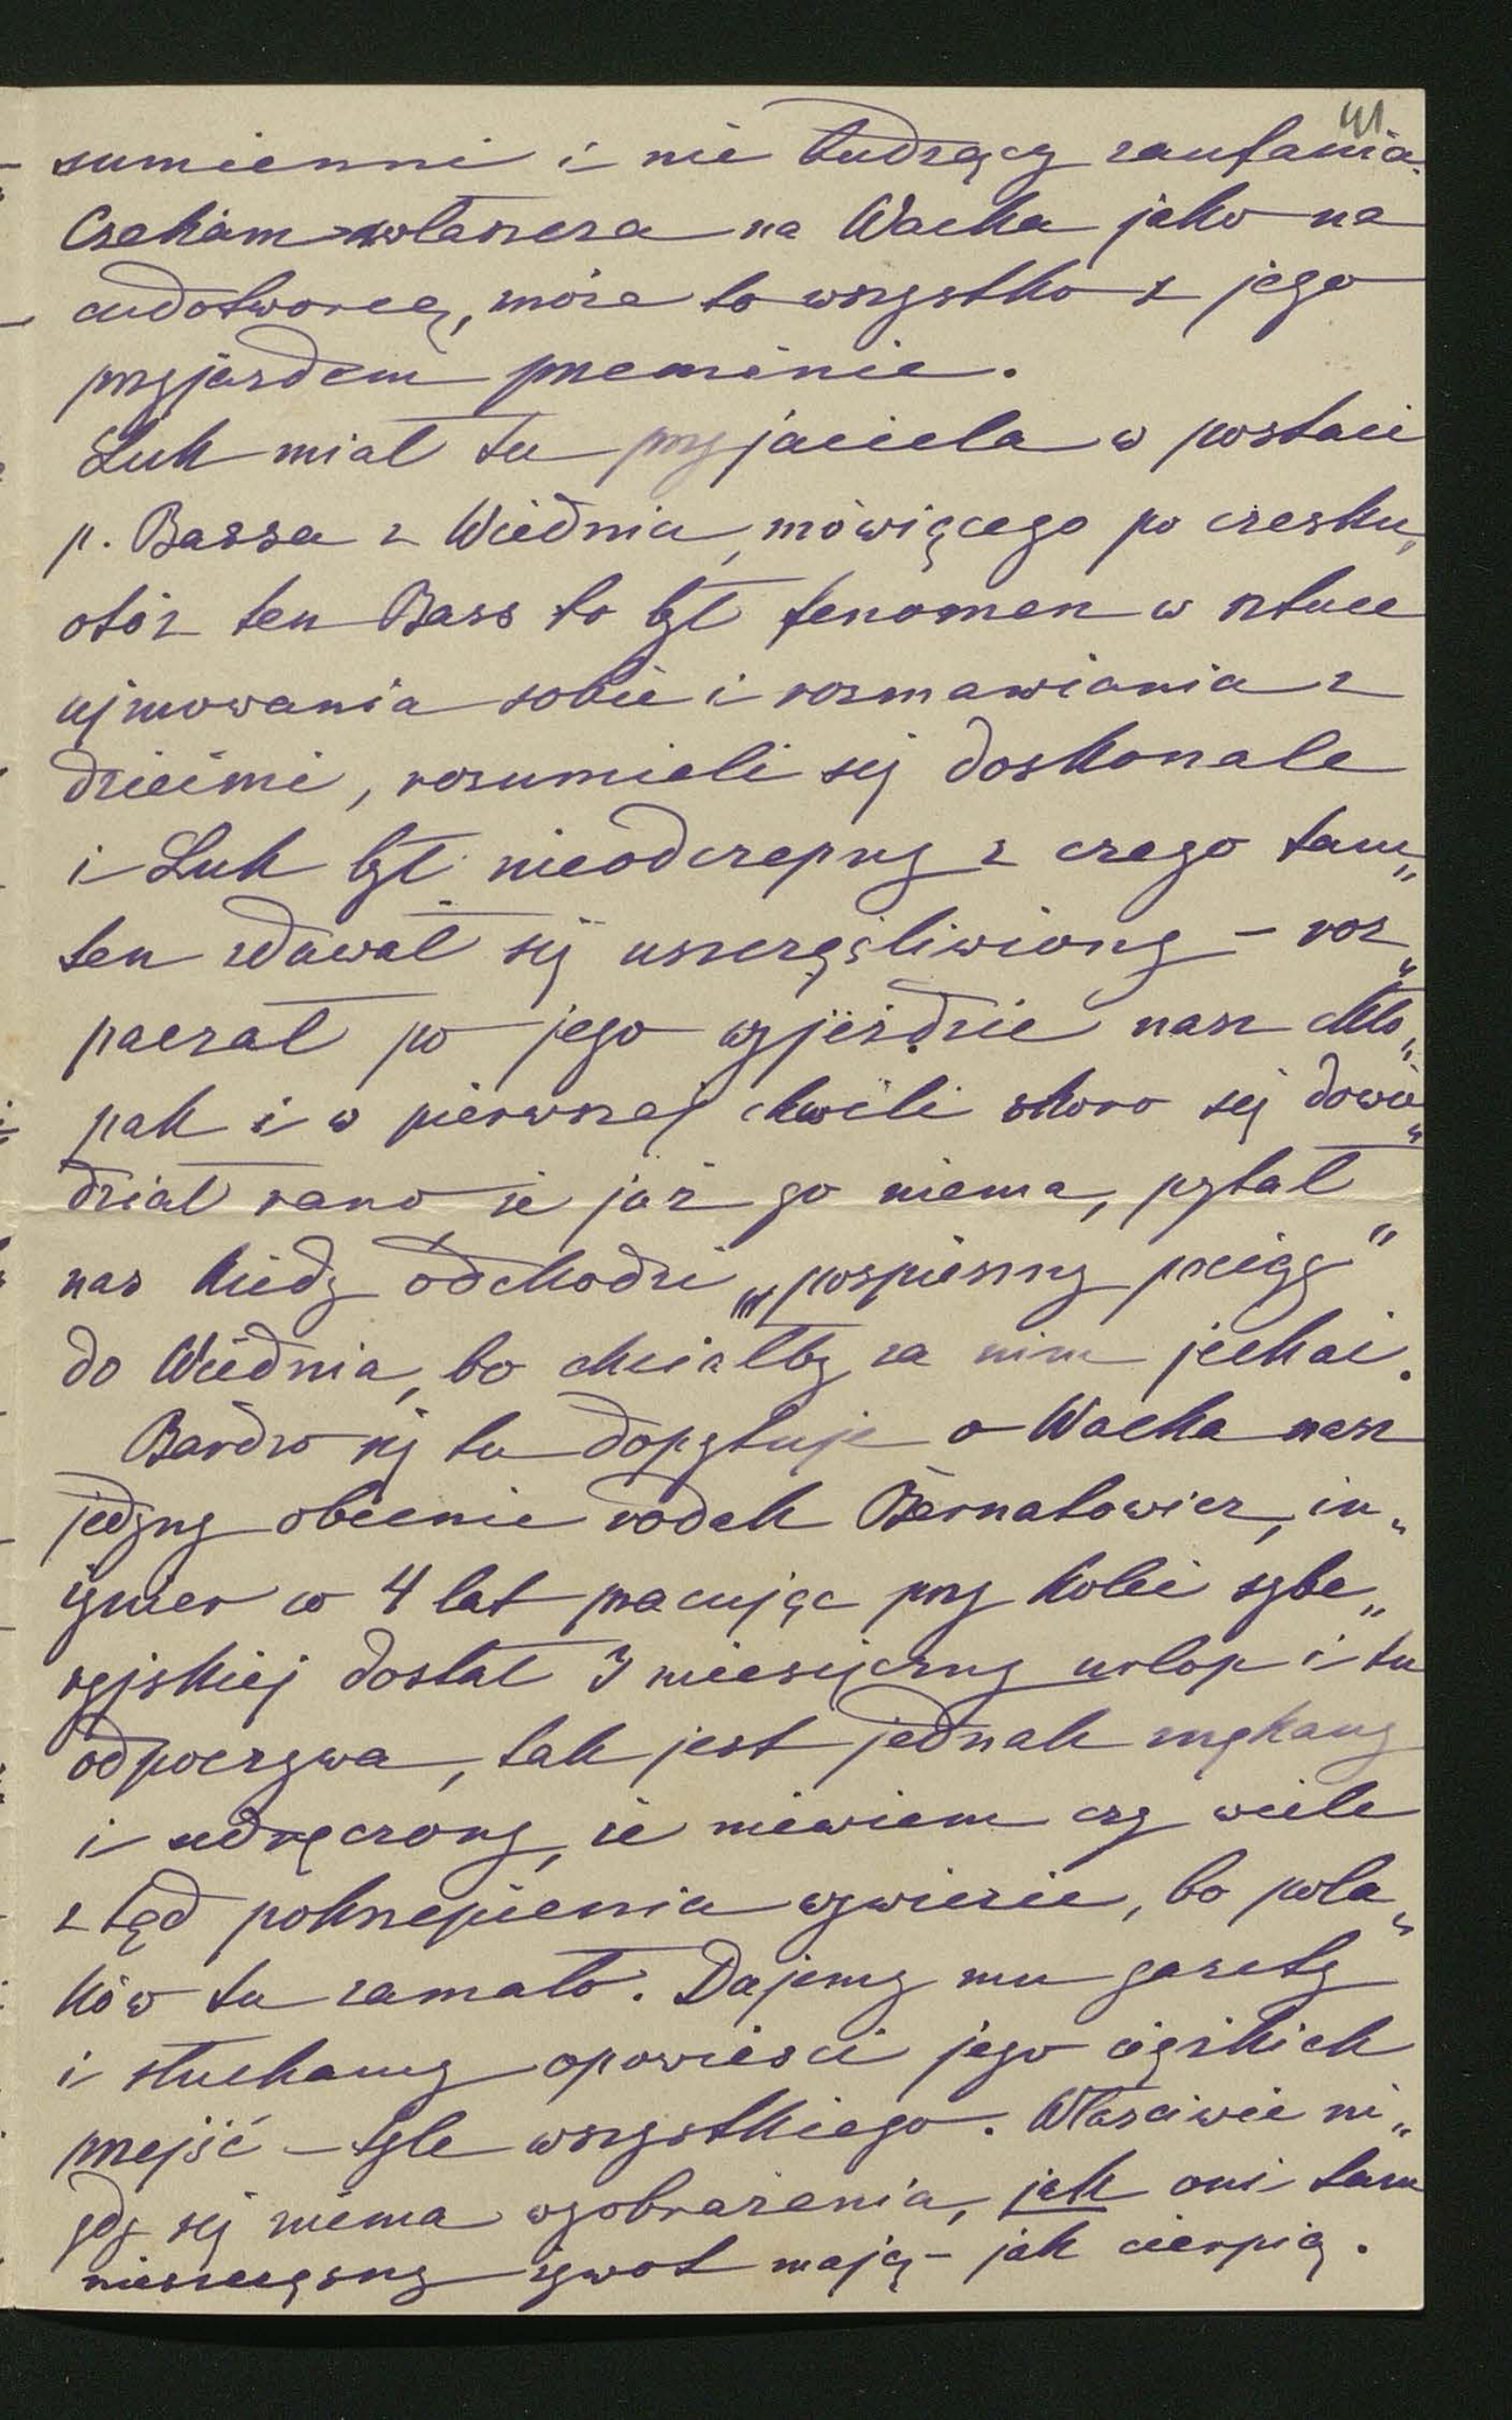 41
sumienni i nie budzący zaufania.
Czekam zwłaszcza na Wacka jako na
cudotwórcę, może to wszystko z jego
przyjazdem przeminie.
Luk miał tu przyjaciela w postaci
p. Bassa z Wiednia, mówiącego po czesku,
otóż ten Bass to był fenomen w sztuce
ujmowania sobie i rozmawiania z
dziećmi, rozumieli się doskonale
i Luk był nieodczepny z czego tam„
ten zdawał się uszczęśliwiony – roz„
paczał po jego wyjeździe nasz chło„
pak i w pierwszej chwili skoro się dowie„
dział rano że już go niema, pytał
nas kiedy odchodzi „pospieszny pciąg"
do Wiednia, bo chciałby za nim jechać.
Bardzo się tu dopytuje o Wacka nasz
jedyny obecnie rodak Bernatowicz, in„
żynier co 4 lat pracując przy kolei sybe„
ryjskiej dostał 3 miesięczny urlop i tu
odpoczywa, tak jest jednak znękany
i udręczony, że niewiem czy wiele
ztąd pokrzepienia wywiezie, bo pola„
ków tu zamało. Dajemy mu gazety
i słuchamy opowieści jego ciężkich
przejść – tyle wszystkiego. Właściwie ni„
gdy się niema wyobrażenia, jak oni tam
nieszczęsny żywot mają – jak cierpią.